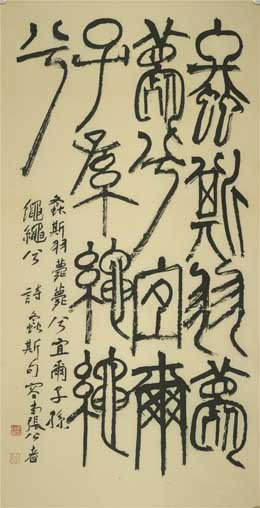 螽斯羽薨
薨兮宜爾
子孫繩繩
兮
螽斯羽薨薨兮宜爾子孫
繩繩兮 詩螽斯句 張公者